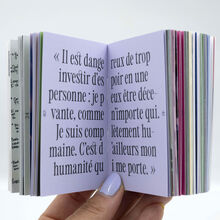 « Il est dangereux de trop
investir d'espoir en une
personne : je peux être déce-
vante, comme n'importe qui.
Je suis complètement hu-
maine. C'est d'ailleurs mon
humanité qui me porte. »